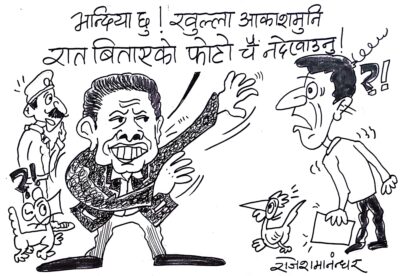 भन्दिया छु ! खुल्ला आकाशमुनि
रात बिताएको फोटो चैं नदेखाउनु !
?!
?!
राजेशमानन्धर